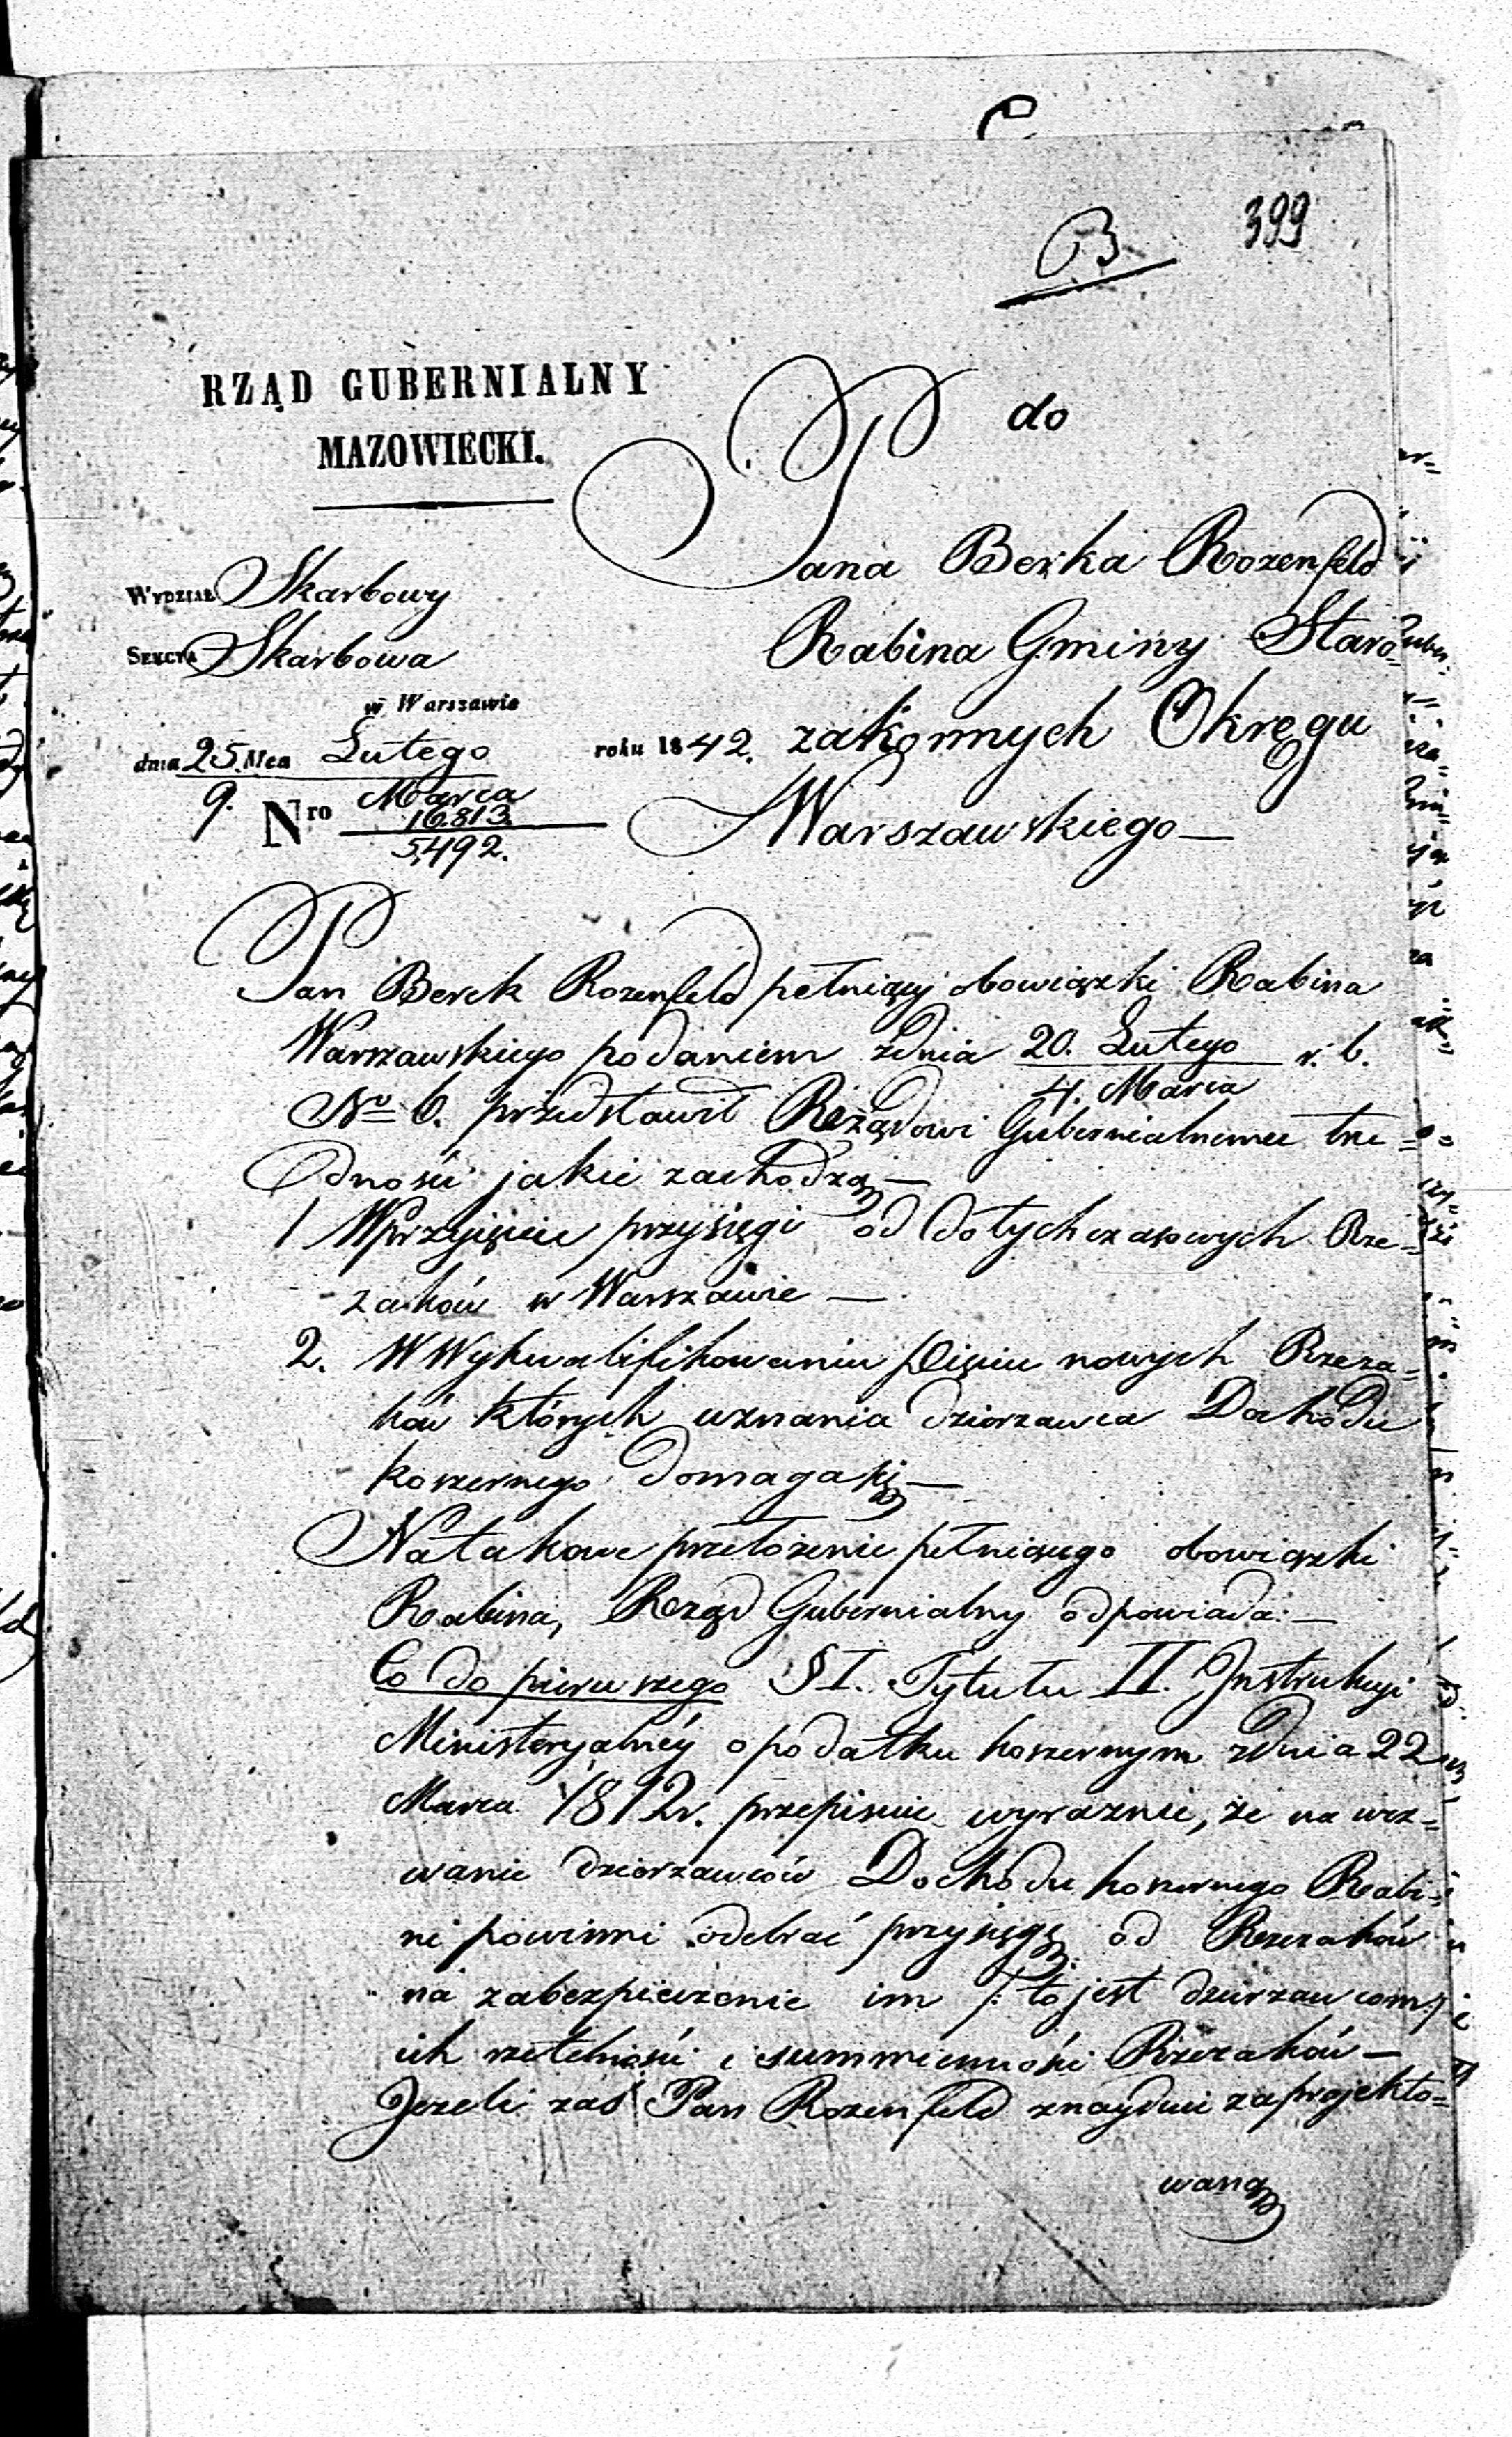 B
399
RZĄD GUBERNIALNY
MAZOWIECKI.
do
Pana Berka Rozenfeld
Rabina Gminy Staro-
zakonnych Okręgu
Warszawskiego—
WYDZIAŁ Skarbowy
SEKCYA Skarbowa
w Warszawie
dnia 25 Mca Lutego roku 1842.
9. Marca
Nro 16.813
5,492.
Pan Berek Rozenfeld pełniący obowiązki Rabina
Warszawskiego podaniem zdnia 20. Lutego r. b.
4. Marca
No 6. przedstawił Rządowi Gubernialnemu tru-
dności jakie zachodzą—
1 W przyjęciu przysięgi od dotychczasowych Rze-
zaków w Warszawie —
2. W Wykwalifikowaniu pięciu nowych Rzeza-
ków których uznania dzierzawca Dochodu
koszernego domaga się—
Na takowe przełożenie pełniącego obowiązki
Rabina, Rząd Gubernialny odpowiada:—
Co do pierwszego § I. Tytułu II. Instrukcyi
Ministeryalnéy o podatku koszernym zdnia 22
Marca 1812 r. przepisuie wyraznie, że na wez-
wanie dzierzawców Dochodu koszernego Rabi-
ni powinni odebrać przysięgę od Rzezaków
na zabezpieczenie im /: to jest dzierzawcom :/
ich rzetelności i summienności Rzezaków—
Jezeli zaś Pan Rozenfeld znayduie zaprojekto-
waną